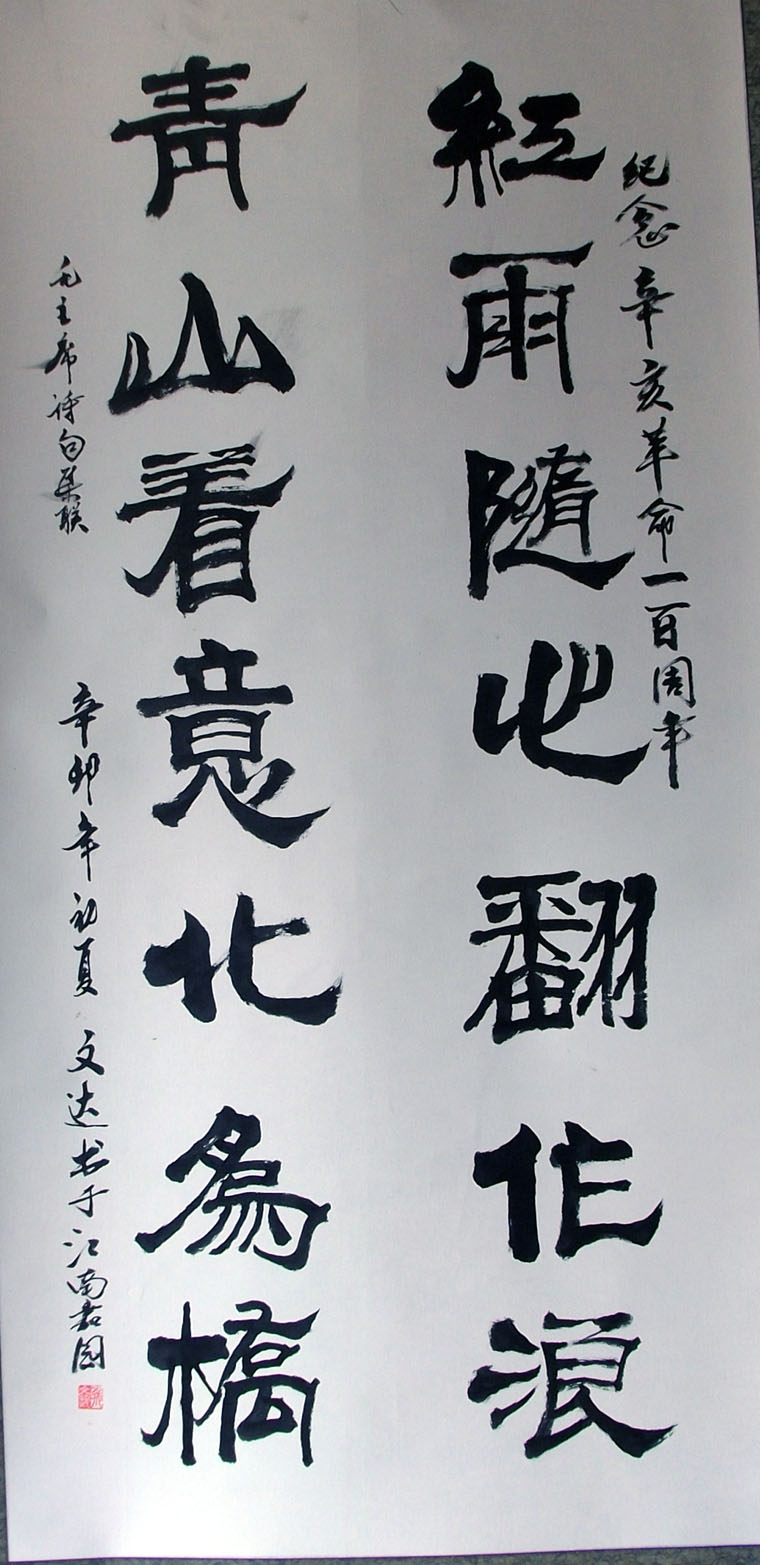 纪念辛亥革命一百周年
紅雨隨心翻作浪
青山着意化為橋
毛主席诗句集联
辛卯年初夏 文达书于江南嘉园